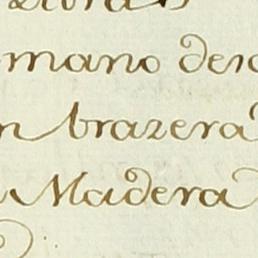 omano de
n brazera
Madera